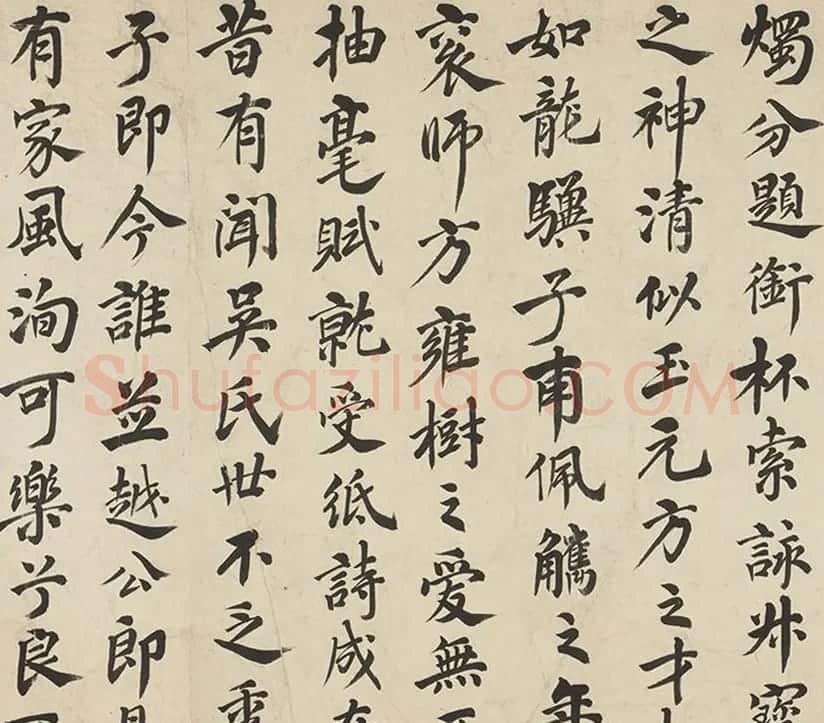 燭分題銜杯索詠叔寶
之神清似玉元方之才
如龍驥子甫佩觿之年
袞師方雍樹之愛無
抽毫賦就受紙詩成
昔有聞吳氏世不乏
子即今誰並越公即
有家風洵可樂兮良
Shufaziliao.COM